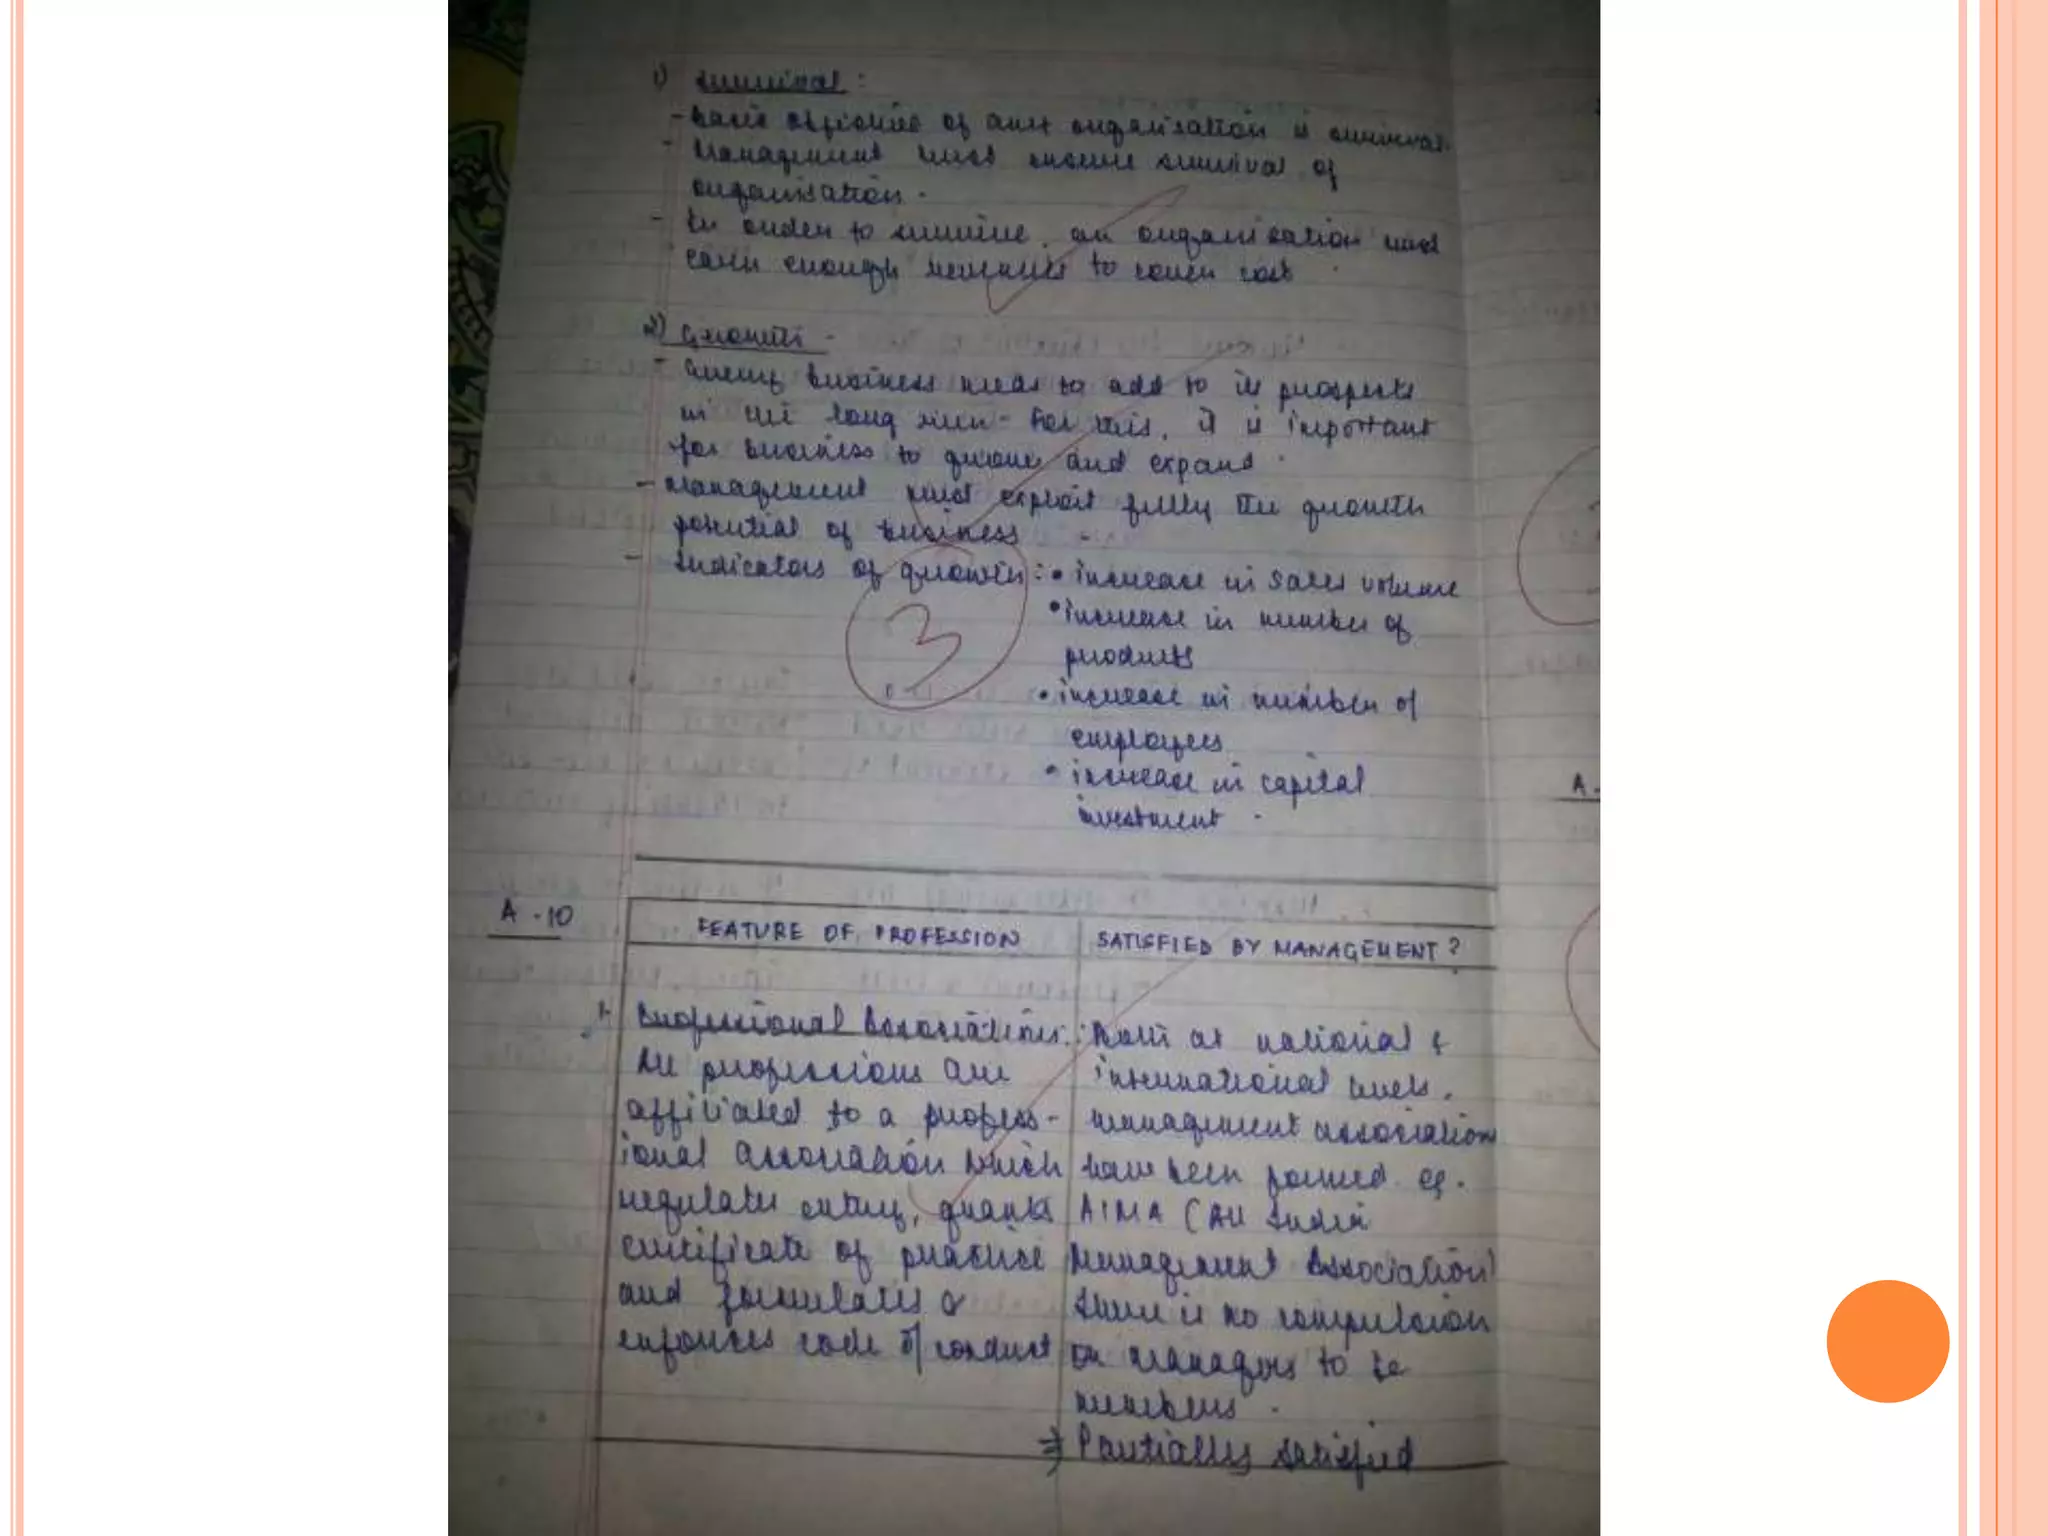 1) Survival :
- Basic objective of any organisation is survival.
- Management must ensure survival of
organisation.
- In order to survive, an organisation must
earn enough revenues to cover cost
2) Growth -
- Every business needs to add to its prospects
in the long run - For this, it is important
for business to grow and expand.
- Management must exploit fully the growth
potential of business
- Indicators of growth : • increase in sales volume
• increase in number of
products
• increase in number of
employees
• increase in capital
investment.
3
A-10
FEATURE OF PROFESSION
SATISFIED BY MANAGEMENT?
1. Professional Associations:
All professions are
affiliated to a profess-
ional association which
regulates entry, grants
certificate of practice
and formulates &
enforces code of conduct
Both at national &
international levels,
management associations
have been formed. eg.
AIMA (All India
Management Association)
There is no compulsion
on managers to be
members.
⇒ Partially satisfied
A-